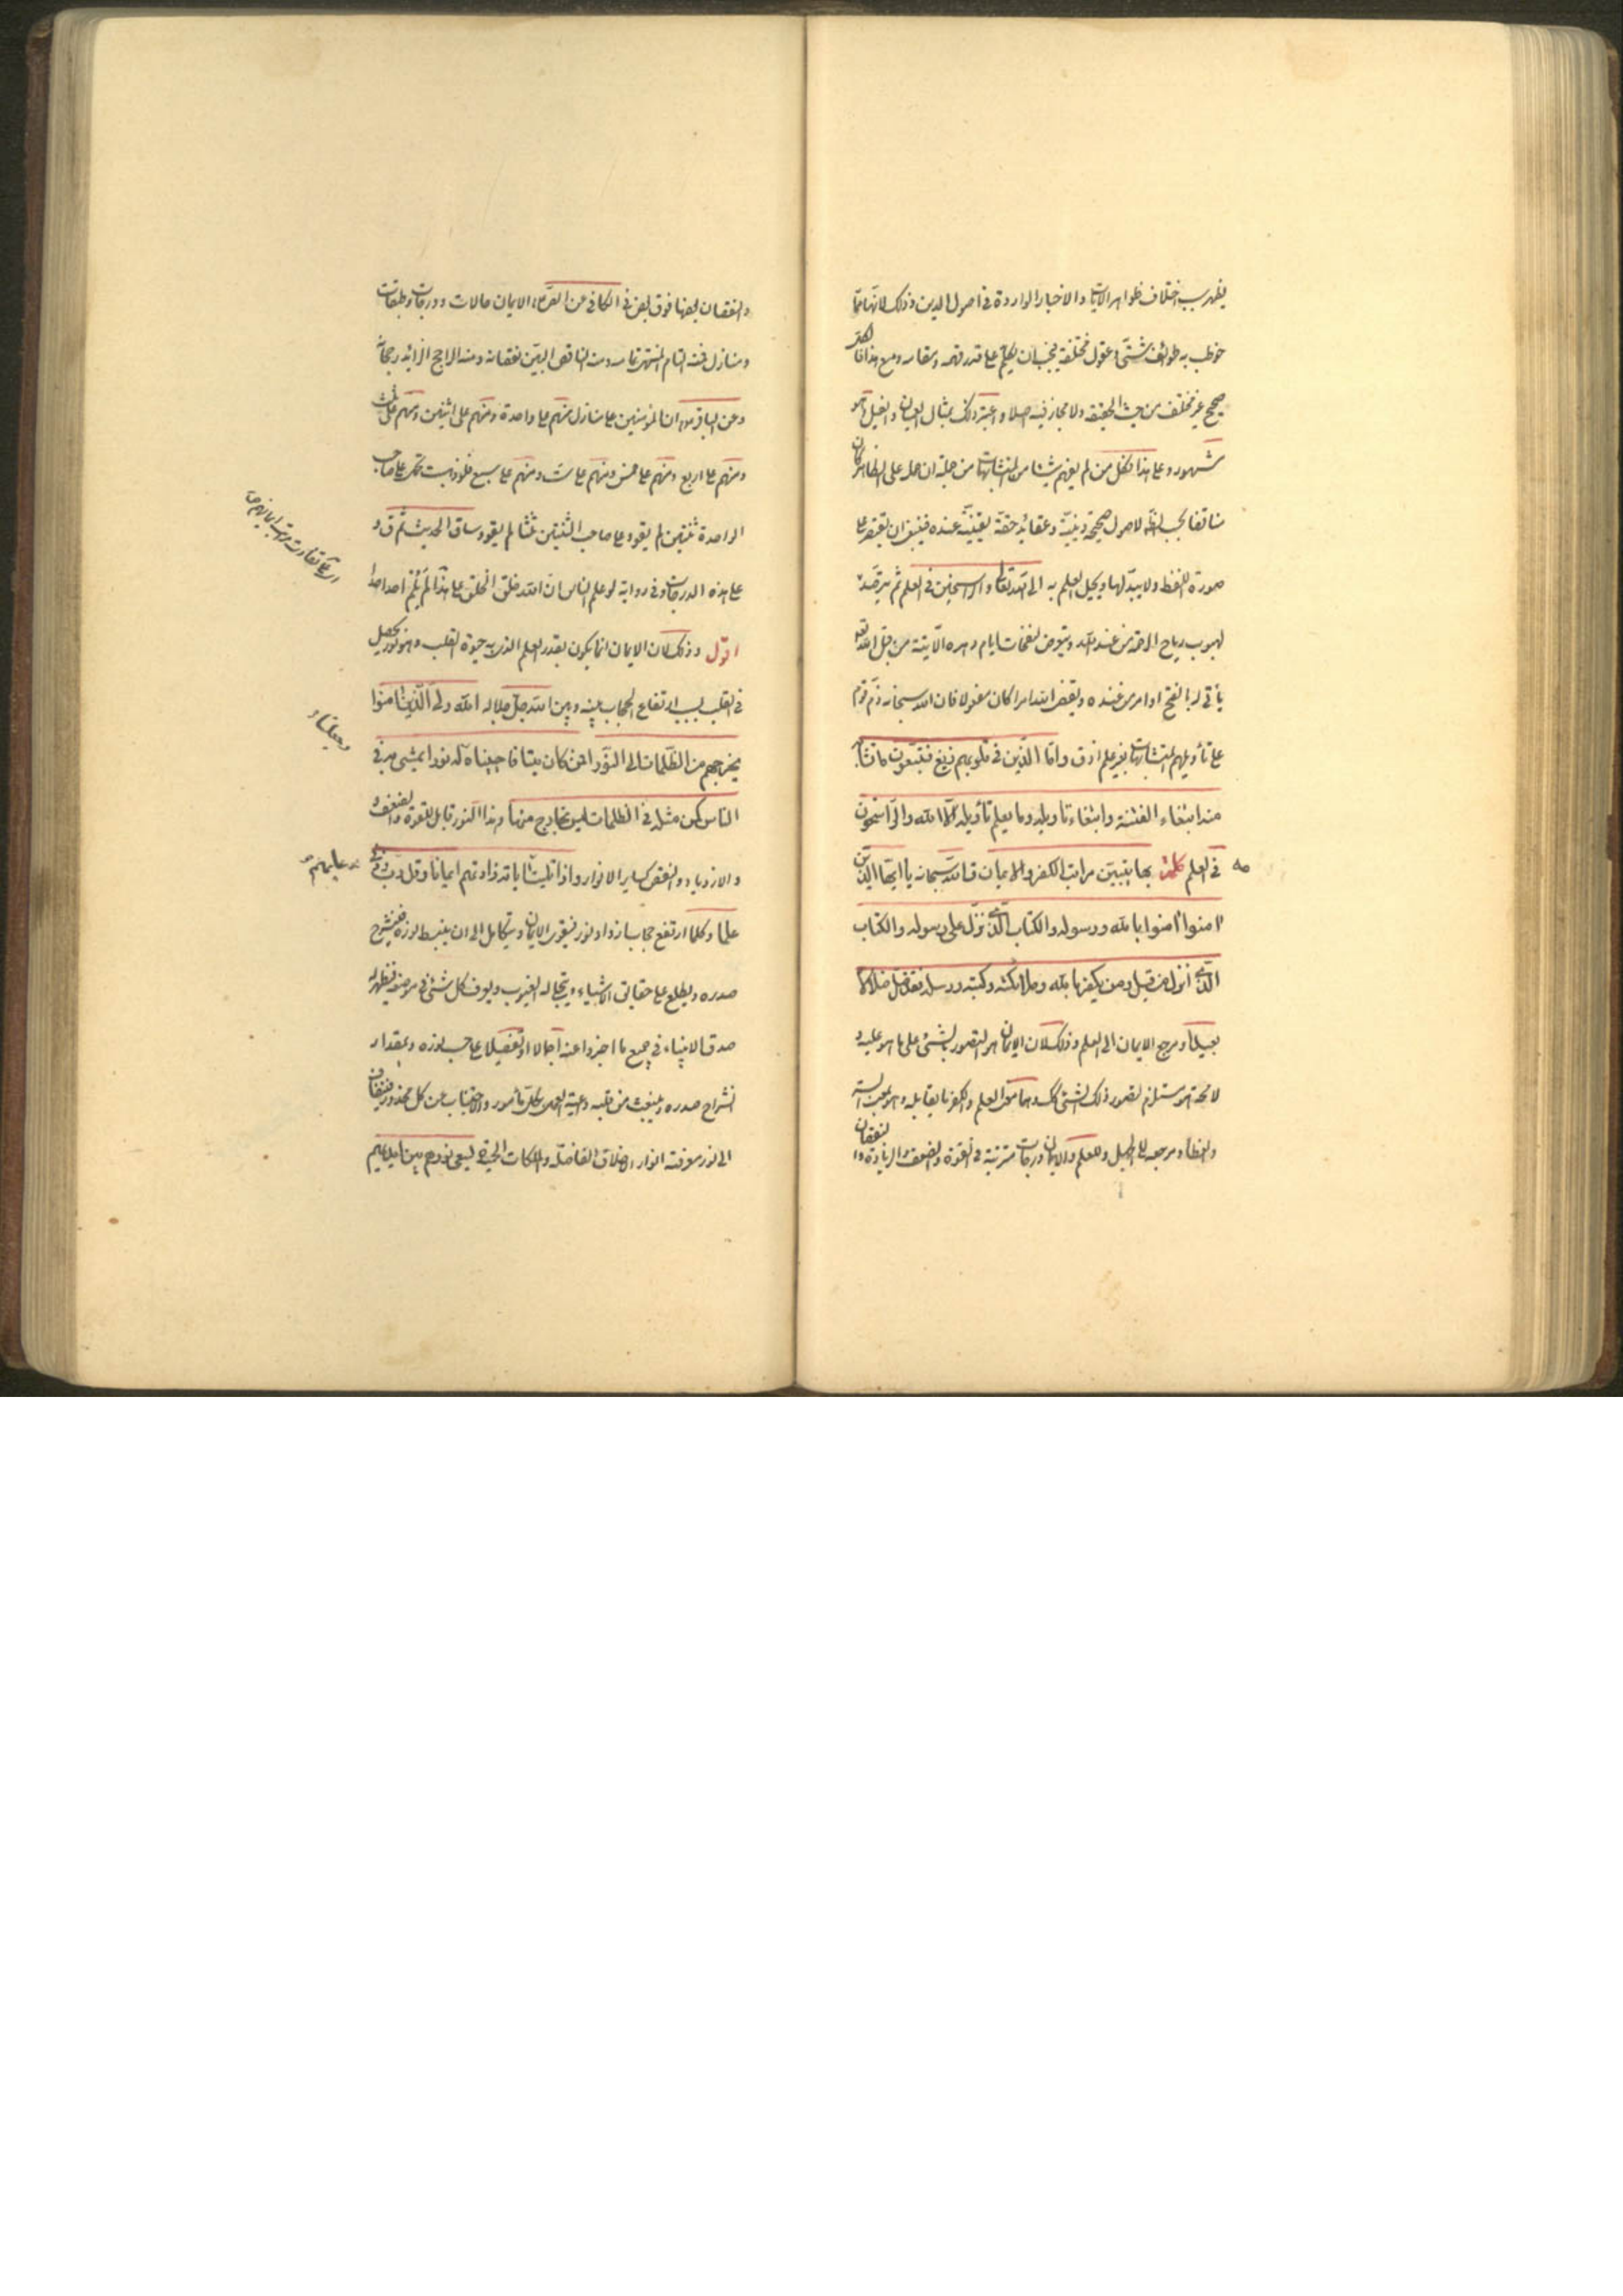 يظهر سبب اختلاف ظواهر الآيات والاخبار الواردة في اصول الدين وذلك لانها مما
خوطب به طوائف شتى وعقول مختلفة فيجب ان يكلم كل على قدر فهمه ومقامه ومع هذا فالكل
صحيح غير مختلف من حيث الحقيقة ولا مجاز فيه اصلا واعتبر ذلك بمثال العميان والفيل وهو
مشهور وعلى هذا فكل من لم يفهم شيئا من المتشابهات من جهة ان حمله على الظاهر كان
مناقضا بحسب الظاهر لاصول صحيحة دينية وعقائد حقة يقينية عنده فينبغي ان يقتصر على
صورة اللفظ ولا يبدلها ويحيل العلم به الى الله تعالى والراسخين في العلم ثم يترصد
لهبوب رياح الرحمة من عند الله ويتعرض لنفحات ايام دهره الآتية من قبل الله تعالى
يأتي له بالفتح او امر من عنده ويقضى الله امرا كان مفعولا فان الله سبحانه ذم قوم
على تأويلهم المتشابهات بغير علم فقال واما الذين في قلوبهم زيغ فيتبعون ما تشابه
منه ابتغاء الفتنة وابتغاء تأويله وما يعلم تأويله الا الله والراسخون
في العلم كلمة بها يتبين مراتب الكفر والايمان قال الله سبحانه يا ايها الذين
امنوا امنوا بالله ورسوله والكتاب الذي نزل على رسوله والكتاب
الذي انزل من قبل ومن يكفر بالله وملائكته وكتبه ورسله فقد ضل ضلالا
بعيدا ومرجع الايمان الى العلم وذلك لان الايمان هو التصور بالشيء على ما هو عليه و
لا محالة هو مستلزم لتصور ذلك الشيء كذلك وهما معنى العلم والكفر ما يقابله وهو بمعنى الستر
والغطاء ومرجعه الى الجهل وللعلم والايمان درجات مترتبة في القوة والضعف والزيادة والنقصان
والنقصان بعضها فوق بعض في الكافي عن الصادق الايمان حالات ودرجات وطبقات
ومنازل فمنه التام المنتهى تمامه ومنه الناقص البين نقصانه ومنه الراجح الزائد رجحانه
وعن الباقر ان المؤمنين على منازل منهم على واحدة ومنهم على اثنتين ومنهم على ثلث
ومنهم على اربع ومنهم على خمس ومنهم على ست ومنهم على سبع فلو ذهبت تحمل على صاحب
الواحدة ثنتين لم يقو وعلى صاحب الثنتين ثلثا لم يقو وساق الحديث ثم ق و
على هذه الدرجات وفي رواية لو علم الناس ان الله خلق الخلق على هذا لم يلم احد احدا
اقول وذلك لان الايمان انما يكون بقدر العلم الذي به حيوة القلب وهو نور يحصل
في القلب بسبب ارتفاع الحجاب بينه وبين الله جل جلاله الله ولى الذين امنوا
يخرجهم من الظلمات الى النور او من كان ميتا فاحييناه وجعلنا له نورا يمشي به في
الناس كمن مثله في الظلمات ليس بخارج منها وهذا النور قابل للقوة والضعف
والازدياد والنقص كساير الانوار واذا تليت عليهم اياته زادتهم ايمانا وقل رب زدني
علما وكلما ارتفع حجاب ازداد نور فيقوى الايمان ويتكامل الى ان ينبسط نوره فينشرح
صدره ويطلع على حقائق الاشياء ويتجلى له الغيوب ويعرف كل شيء في موضعه فيظهر له
صدق الانبياء في جميع ما اخبروا عنه اجمالا او تفصيلا على حسب نوره وبمقدار
انشراح صدره وينبعث من قلبه داعية العمل بكل مأمور والاجتناب عن كل محذور فينضاف
الى نور معرفته انوار الاخلاق الفاضلة والملكات الحميدة يسعى نورهم بين ايديهم